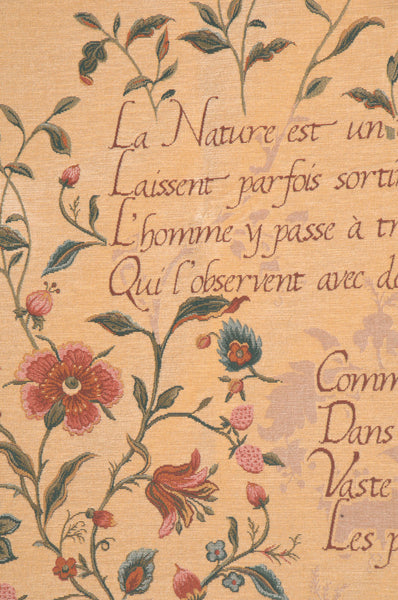 La Nature est un
Laissent parfois sorti
L'homme y passe à tr
Qui l'observent avec de
Comm
Dans
Vaste
Les p